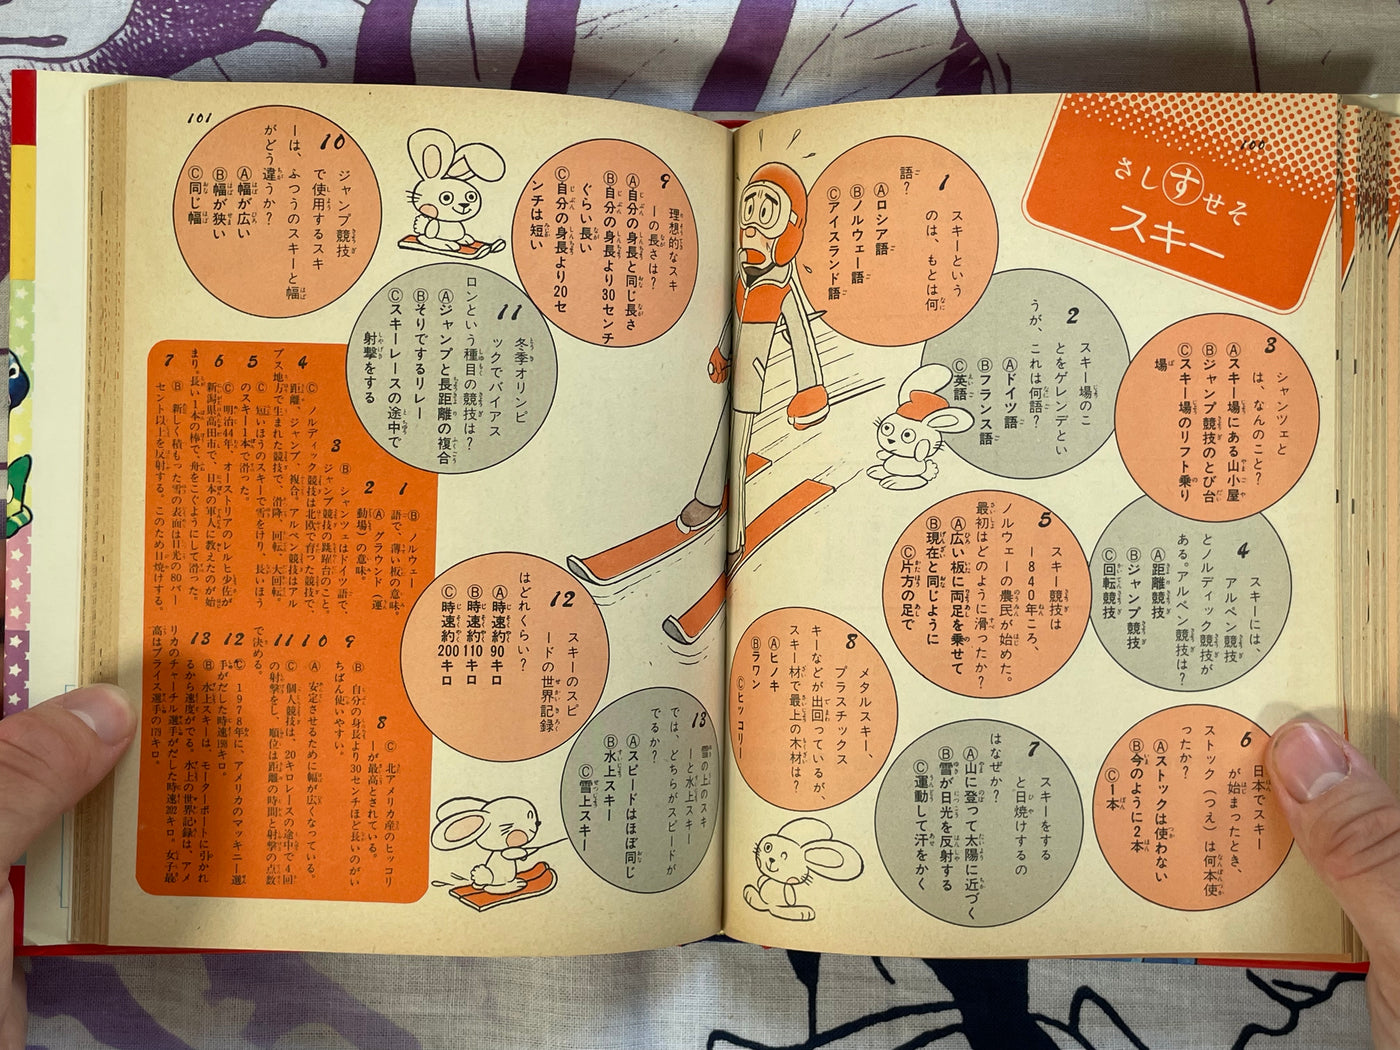 100
さしすせそ
スキー
1 スキーという
のは、もとは何
語?
Ⓐロシア語
Ⓑノルウェー語
Ⓒアイスランド語
2 スキー場のこ
とをゲレンデとい
うが、これは何語?
Ⓐドイツ語
Ⓑフランス語
Ⓒ英語
3 シャンツェと
は、なんのこと?
Ⓐスキー場にある山小屋
Ⓑジャンプ競技のとび台
Ⓒスキー場のリフト乗り
場
4 スキーには、
アルペン競技
とノルディック競技が
ある。アルペン競技は?
Ⓐ距離競技
Ⓑジャンプ競技
Ⓒ回転競技
5 スキー競技は
1840年ころ、
ノルウェーの農民が始めた。
最初はどのように滑ったか?
Ⓐ広い板に両足を乗せて
Ⓑ現在と同じように
Ⓒ片方の足で
6 日本でスキー
が始まったとき、
ストック(つえ)は何本使
ったか?
Ⓐストックは使わない
Ⓑ今のように2本
Ⓒ1本
7 スキーをする
と日焼けするの
はなぜか?
Ⓐ山に登って太陽に近づく
Ⓑ雪が日光を反射する
Ⓒ運動して汗をかく
8 メタルスキー、
プラスチックス
キーなどが出回っているが、
スキー材で最上の木材は?
Ⓐヒノキ
Ⓑラワン
Ⓒヒッコリー
101
9 理想的なスキ
ーの長さは?
Ⓐ自分の身長と同じ長さ
Ⓑ自分の身長より30センチ
ぐらい長い
Ⓒ自分の身長より20セ
ンチは短い
10 ジャンプ競技
で使用するスキ
ーは、ふつうのスキーと幅
がどう違うか?
Ⓐ幅が広い
Ⓑ幅が狭い
Ⓒ同じ幅
11 冬季オリンピ
ックでバイアス
ロンという種目の競技は?
Ⓐジャンプと長距離の複合
Ⓑそりでするリレー
Ⓒスキーレースの途中で
射撃をする
12 スキーのスピ
ードの世界記録
はどれくらい?
Ⓐ時速約90キロ
Ⓑ時速約110キロ
Ⓒ時速約200キロ
13 雪の上のスキ
ーと水上スキー
では、どちらがスピードが
でるか?
Ⓐスピードはほぼ同じ
Ⓑ水上スキー
Ⓒ雪上スキー
1 Ⓑ ノルウェー
語で、薄い板の意味。
2 Ⓐ グラウンド(運
動場)の意味。
3 Ⓑ シャンツェはドイツ語で、
ジャンプ競技の跳躍台のこと。
4 Ⓒ ノルディック競技は北欧で育った競技で、
距離、ジャンプ、複合。アルペン競技はアル
プス地方で生まれた競技で、滑降、回転、大回転。
5 Ⓒ 短いほうのスキーで雪をけり、長いほう
のスキー1本で滑った。
6 Ⓒ 明治44年、オーストリアのレルヒ少佐が
新潟県高田市で、日本の軍人に教えたのが始
まり。長い1本の棒で、舟をこぐようにして滑った。
7 Ⓑ 新しく積もった雪の表面は日光の80パー
セント以上を反射する。このため日焼けする。
8 Ⓒ 北アメリカ産のヒッコリ
ーが最高とされている。
9 Ⓑ 自分の身長より30センチほど長いのがい
ちばん使いやすい。
10 Ⓐ 安定させるために幅が広くなっている。
11 Ⓒ 個人競技は、20キロレースの途中で4回
の射撃をし、順位は距離の時間と射撃の点数
で決める。
12 Ⓒ 1978年に、アメリカのマッキニー選
手がだした時速198キロ。
13 Ⓑ 水上スキーは、モーターボートに引かれ
るから速度がでる。水上の世界記録は、アメ
リカのチャーチル選手がだした時速202キロ。女子最
高はプライス選手の179キロ。